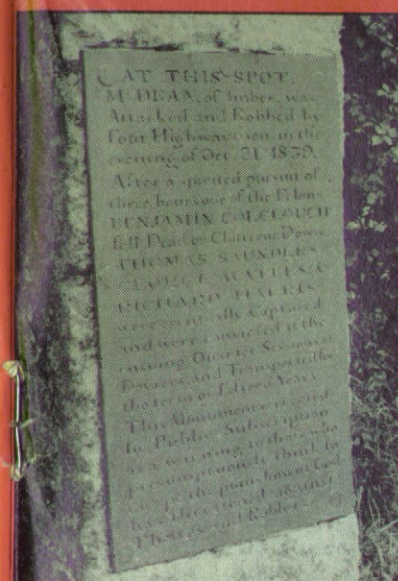 AT THIS SPOT
Mr DEAN, of Imber, was
Attacked and Robbed by
Four Highwaymen, in the
evening of Oct. 21 1839.
After a spirited pursuit of
three hours one of the Felons
BENJAMIN COLCLOUGH
fell Dead on Chitterne Down
THOMAS SAUNDERS
GEORGE WATERS &
RICHARD HARRIS
were eventually Captured
and were convicted at the
ensuing Quarter Sessions at
Devizes, and Transported for
the term of Fifteen Years
This Monument is erected
by Public Subscription
as a warning to those who
presumptuously think to
escape the punishment God
has threatened against
Thieves and Robbers